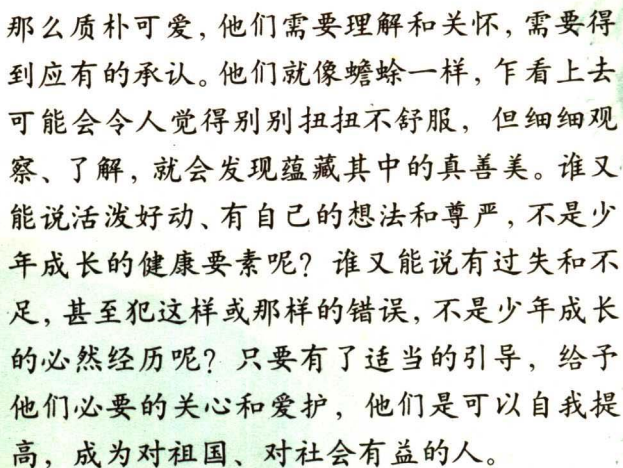 那么质朴可爱，他们需要理解和关怀，需要得
到应有的承认。他们就像蟾蜍一样，乍看上去
可能会令人觉得别别扭扭不舒服，但细细观
察、了解，就会发现蕴藏其中的真善美。谁又
能说活泼好动、有自己的想法和尊严，不是少
年成长的健康要素呢？谁又能说有过失和不
足，甚至犯这样或那样的错误，不是少年成长
的必然经历呢？只要有了适当的引导，给予
他们必要的关心和爱护，他们是可以自我提
高，成为对祖国、对社会有益的人。